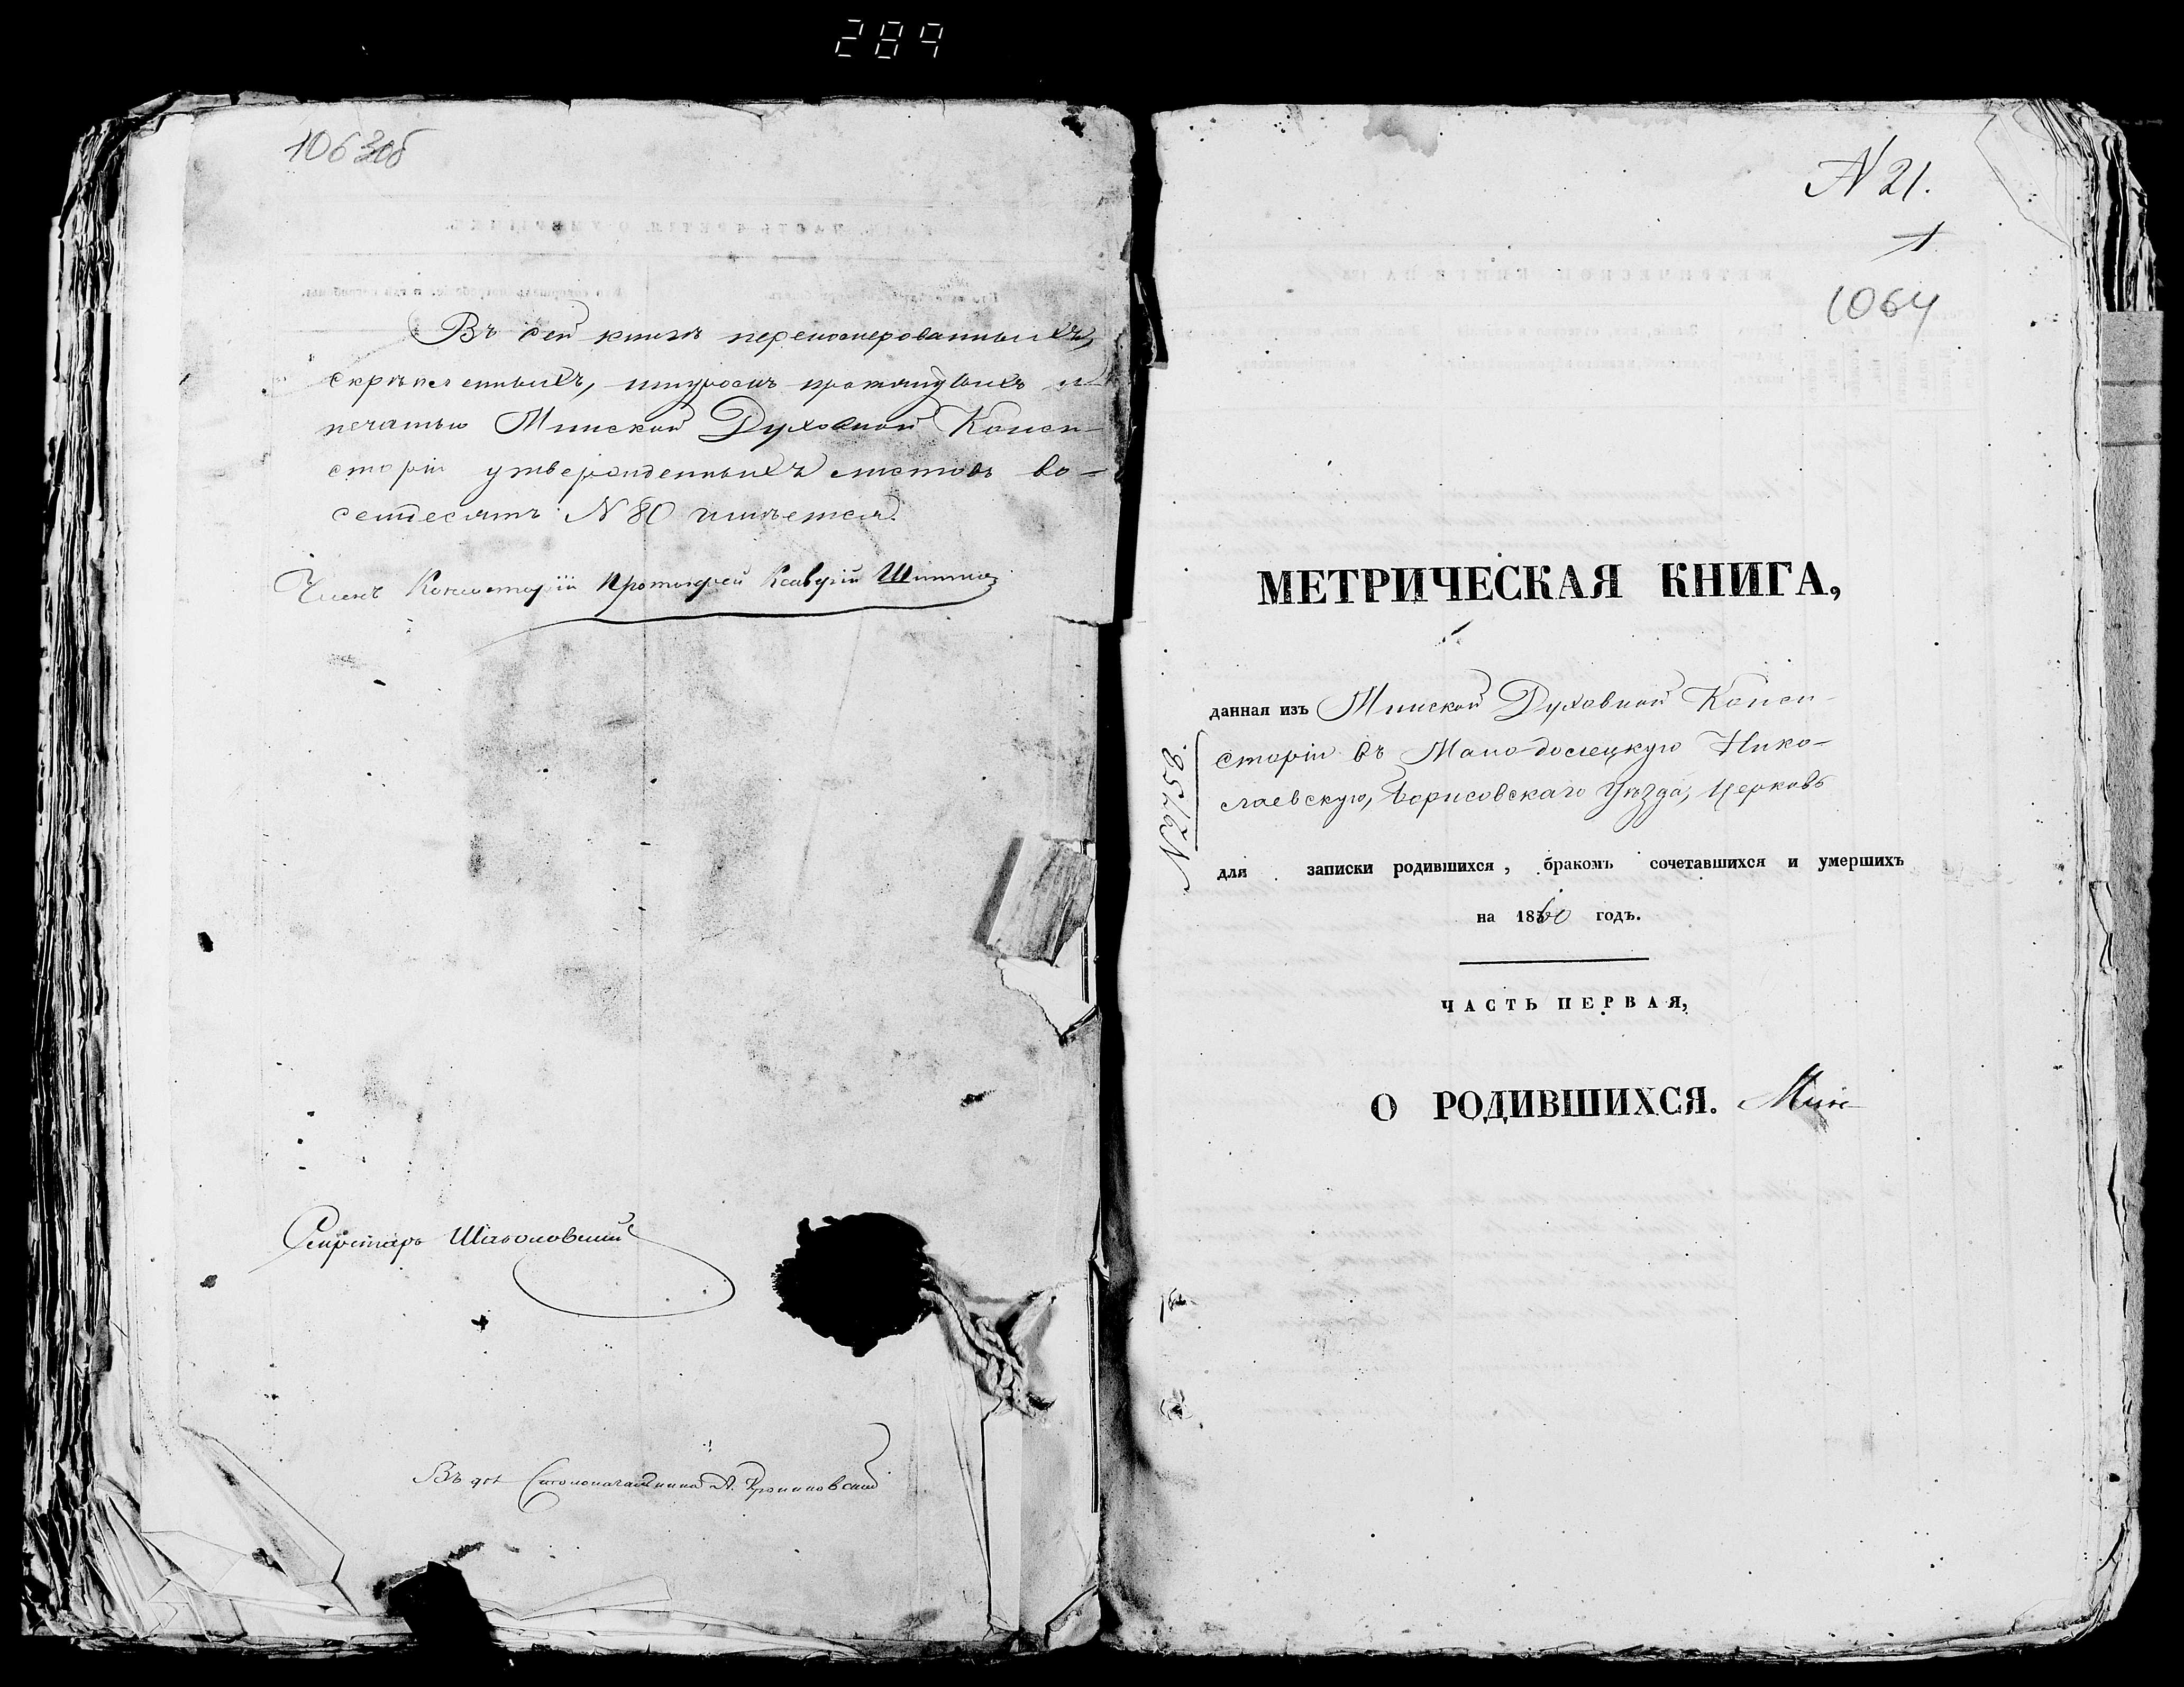 289
1063об
Въ сей книгѣ перенумерованныхъ,
скрѣпленныхъ, шнуромъ протянутыхъ и
печатью Минской Духовной Конси-
сторіи утвержденныхъ листовъ во-
семдесятъ N 80 имѣется.
Членъ Консисторіи Протоіерей
Секретарь
Въ дол. Столоначальника А.
N 21.
1
1064
МЕТРИЧЕСКАЯ КНИГА,
данная изъ Минской Духовной Конси-
сторіи въ Мало-Долецкую Нико-
лаевскую, Борисовскаго Уѣзда, Церковь
N 2758.
для записки родившихся, бракомъ сочетавшихся и умершихъ
на 1860 годъ.
ЧАСТЬ ПЕРВАЯ,
О РОДИВШИХСЯ. Мин-